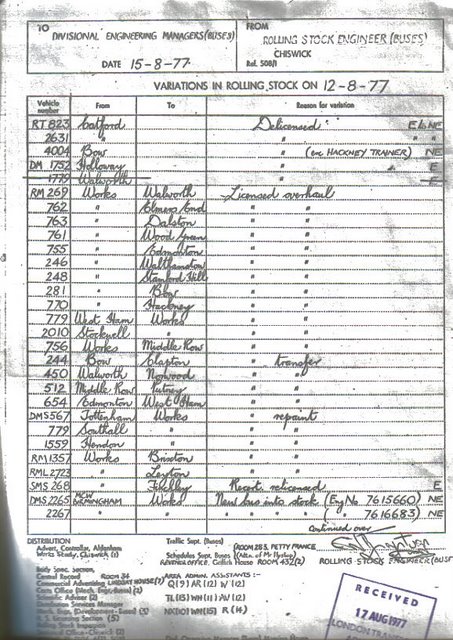 TO
DIVISIONAL ENGINEERING MANAGERS (BUSES)
DATE 15-8-77
FROM
ROLLING STOCK ENGINEER (BUSES)
CHISWICK
Ref. 508/1
VARIATIONS IN ROLLING STOCK ON 12-8-77
Vehicle number From To Reason for variation
RT 823 Catford Delicensed E & NE
2631 " " " "
4004 Bow " (exc HACKNEY TRAINER) NE
DM 1752 Holloway " E
1779 Walworth " E
RM 269 Works Walworth Licensed overhaul
762 " Elmers End " "
763 " Dalston " "
761 " Wood Green " "
755 " Edmonton " "
246 " Walthamstow " "
248 " Stamford Hill " "
281 " Bow " "
770 " Hackney " "
779 West Ham Works " "
2010 Stockwell " " "
756 Works Middle Row " "
244 Bow Clapton " transfer
450 Walworth Norwood " "
512 Middle Row Putney " "
654 Edmonton West Ham " "
DMS 567 Tottenham Works " repaint
779 Southall " " "
1559 Hendon " " "
RM 1357 Works Brixton " "
RML 2723 " Leyton " "
SMS 268 " Fulwell Recert. relicensed E
DMS 2265 MCW BIRMINGHAM Works New bus into stock (Eng No 7615660) NE
2267 " " " " ( " 7616683) NE
continued over
DISTRIBUTION
Advert. Controller, Aldenham
Works Study, Chiswick (1)
Traffic Supt. (Buses)
Schedules Supt. (Buses)
ROOM 283, PETTY FRANCE
REVENUE OFFICE, Griffith House ROOM 432 (2)
ROLLING STOCK ENGINEER (BUSES)
Body Spec. Section,
Central Record ROOM 34
Commercial Advertising
Costs Office (Mech. Engr. Buses) (2)
Scientific Adviser (2)
Distribution Services Manager
AREA ADMIN. ASSISTANTS :-
Q (9) AR (12) W (12)
TL (15) WH (11) AV (12)
NX (10) WN (15) R (14)
RECEIVED
17 AUG 1977